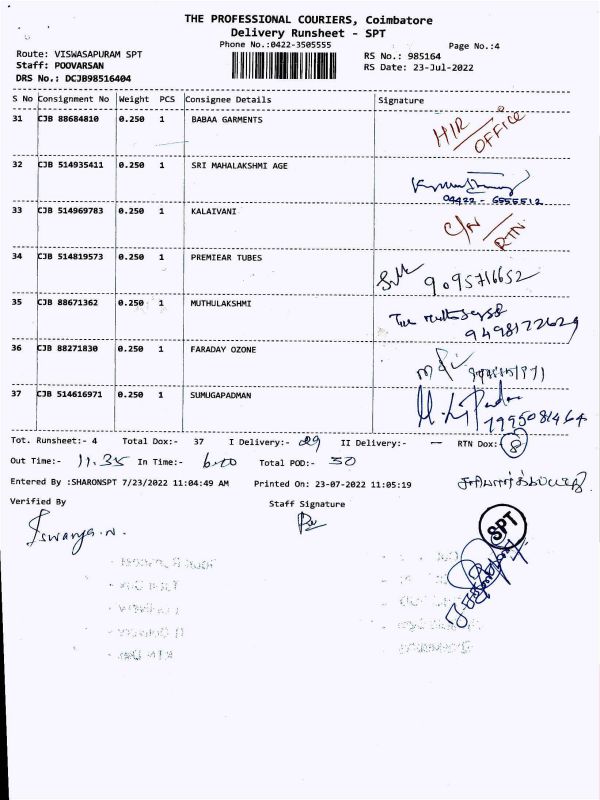 THE PROFESSIONAL COURIERS, Coimbatore
Delivery Runsheet - SPT
Phone No.:0422-3505555 Page No.:4
Route: VISWASAPURAM SPT RS No.: 985164
Staff: POOVARSAN RS Date: 23-Jul-2022
DRS No.: DCJB98516404
S No Consignment No Weight PCS Consignee Details Signature
31 CJB 88684810 0.250 1 BABAA GARMENTS H/R OFFICE
32 CJB 514935411 0.250 1 SRI MAHALAKSHMI AGE
04422 - 6555512
33 CJB 514969783 0.250 1 KALAIVANI C/N RTN
34 CJB 514819573 0.250 1 PREMIEAR TUBES 9095716652
35 CJB 88671362 0.250 1 MUTHULAKSHMI
9498172629
36 CJB 88271830 0.250 1 FARADAY OZONE
37 CJB 514616971 0.250 1 SUMUGAPADMAN
7995081464
Tot. Runsheet:- 4 Total Dox:- 37 I Delivery:- 29 II Delivery:- — RTN Dox: 8
Out Time:- 11.35 In Time:- 6.00 Total POD:- 30
Entered By :SHARONSPT 7/23/2022 11:04:49 AM Printed On: 23-07-2022 11:05:19
Verified By Staff Signature
Iswarya.n.
SPT